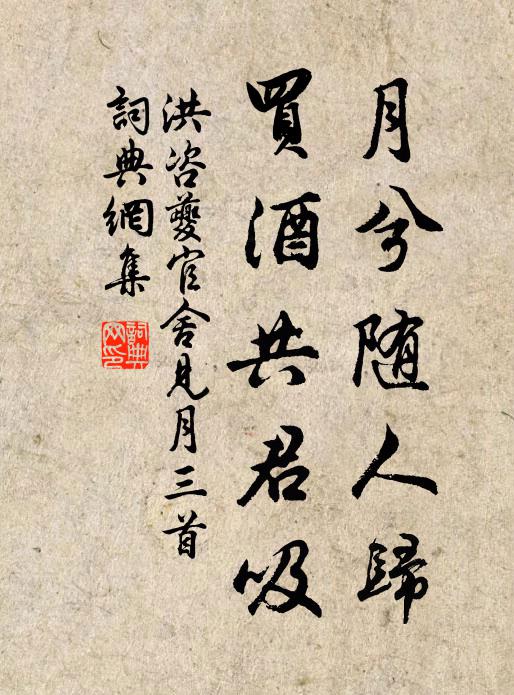 月兮随人歸
買酒共君吸
洪咨夔官舍見月三首
詞典網集
詞典網印